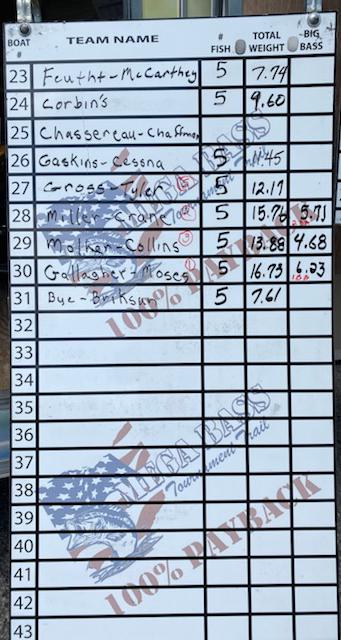 BOAT # TEAM NAME # FISH TOTAL WEIGHT BIG BASS
23 Feutht-McCarthey 5 7.74
24 Corbin's 5 9.60
25 Chassereau-Chaffman
26 Gaskins-Cessna 5 11.45
27 Gross-Tyler 5 12.17
28 Miller-Crane 5 15.76 5.71
29 Molkar-Collins 3 5 13.88 4.68
30 Gallagher-Moses 1 5 16.73 6.23
31 Bye-Briksun 5 7.61
32
33
34
35
36
37
38
39
40
41
42
43
MEGA BASS
Tournament Trail
100% PAYBACK
MEGA BASS
Tournament Trail
100% PAYBACK